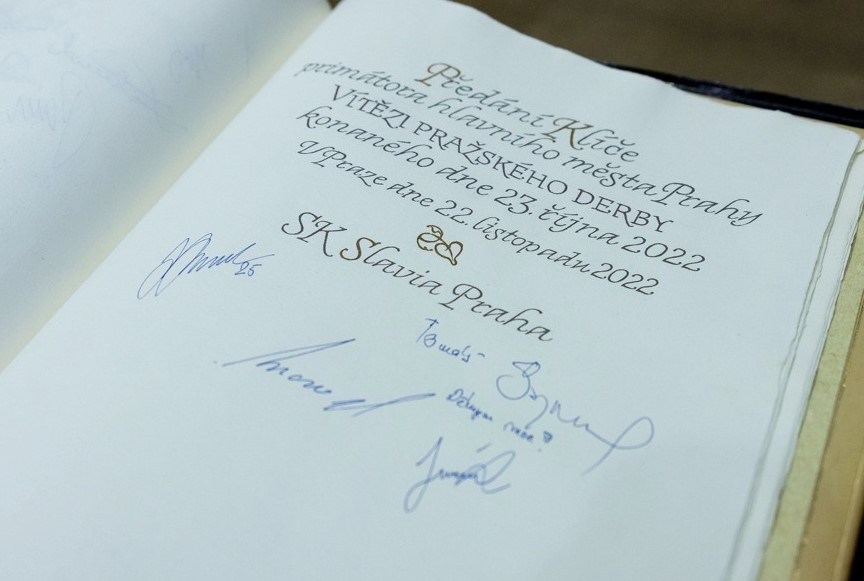 Předání Klíče
primátora hlavního města Prahy
VÍTĚZI PRAŽSKÉHO DERBY
konaného dne 23. října 2022
V Praze dne 22. listopadu 2022
SK Slavia Praha
25
Tomáš